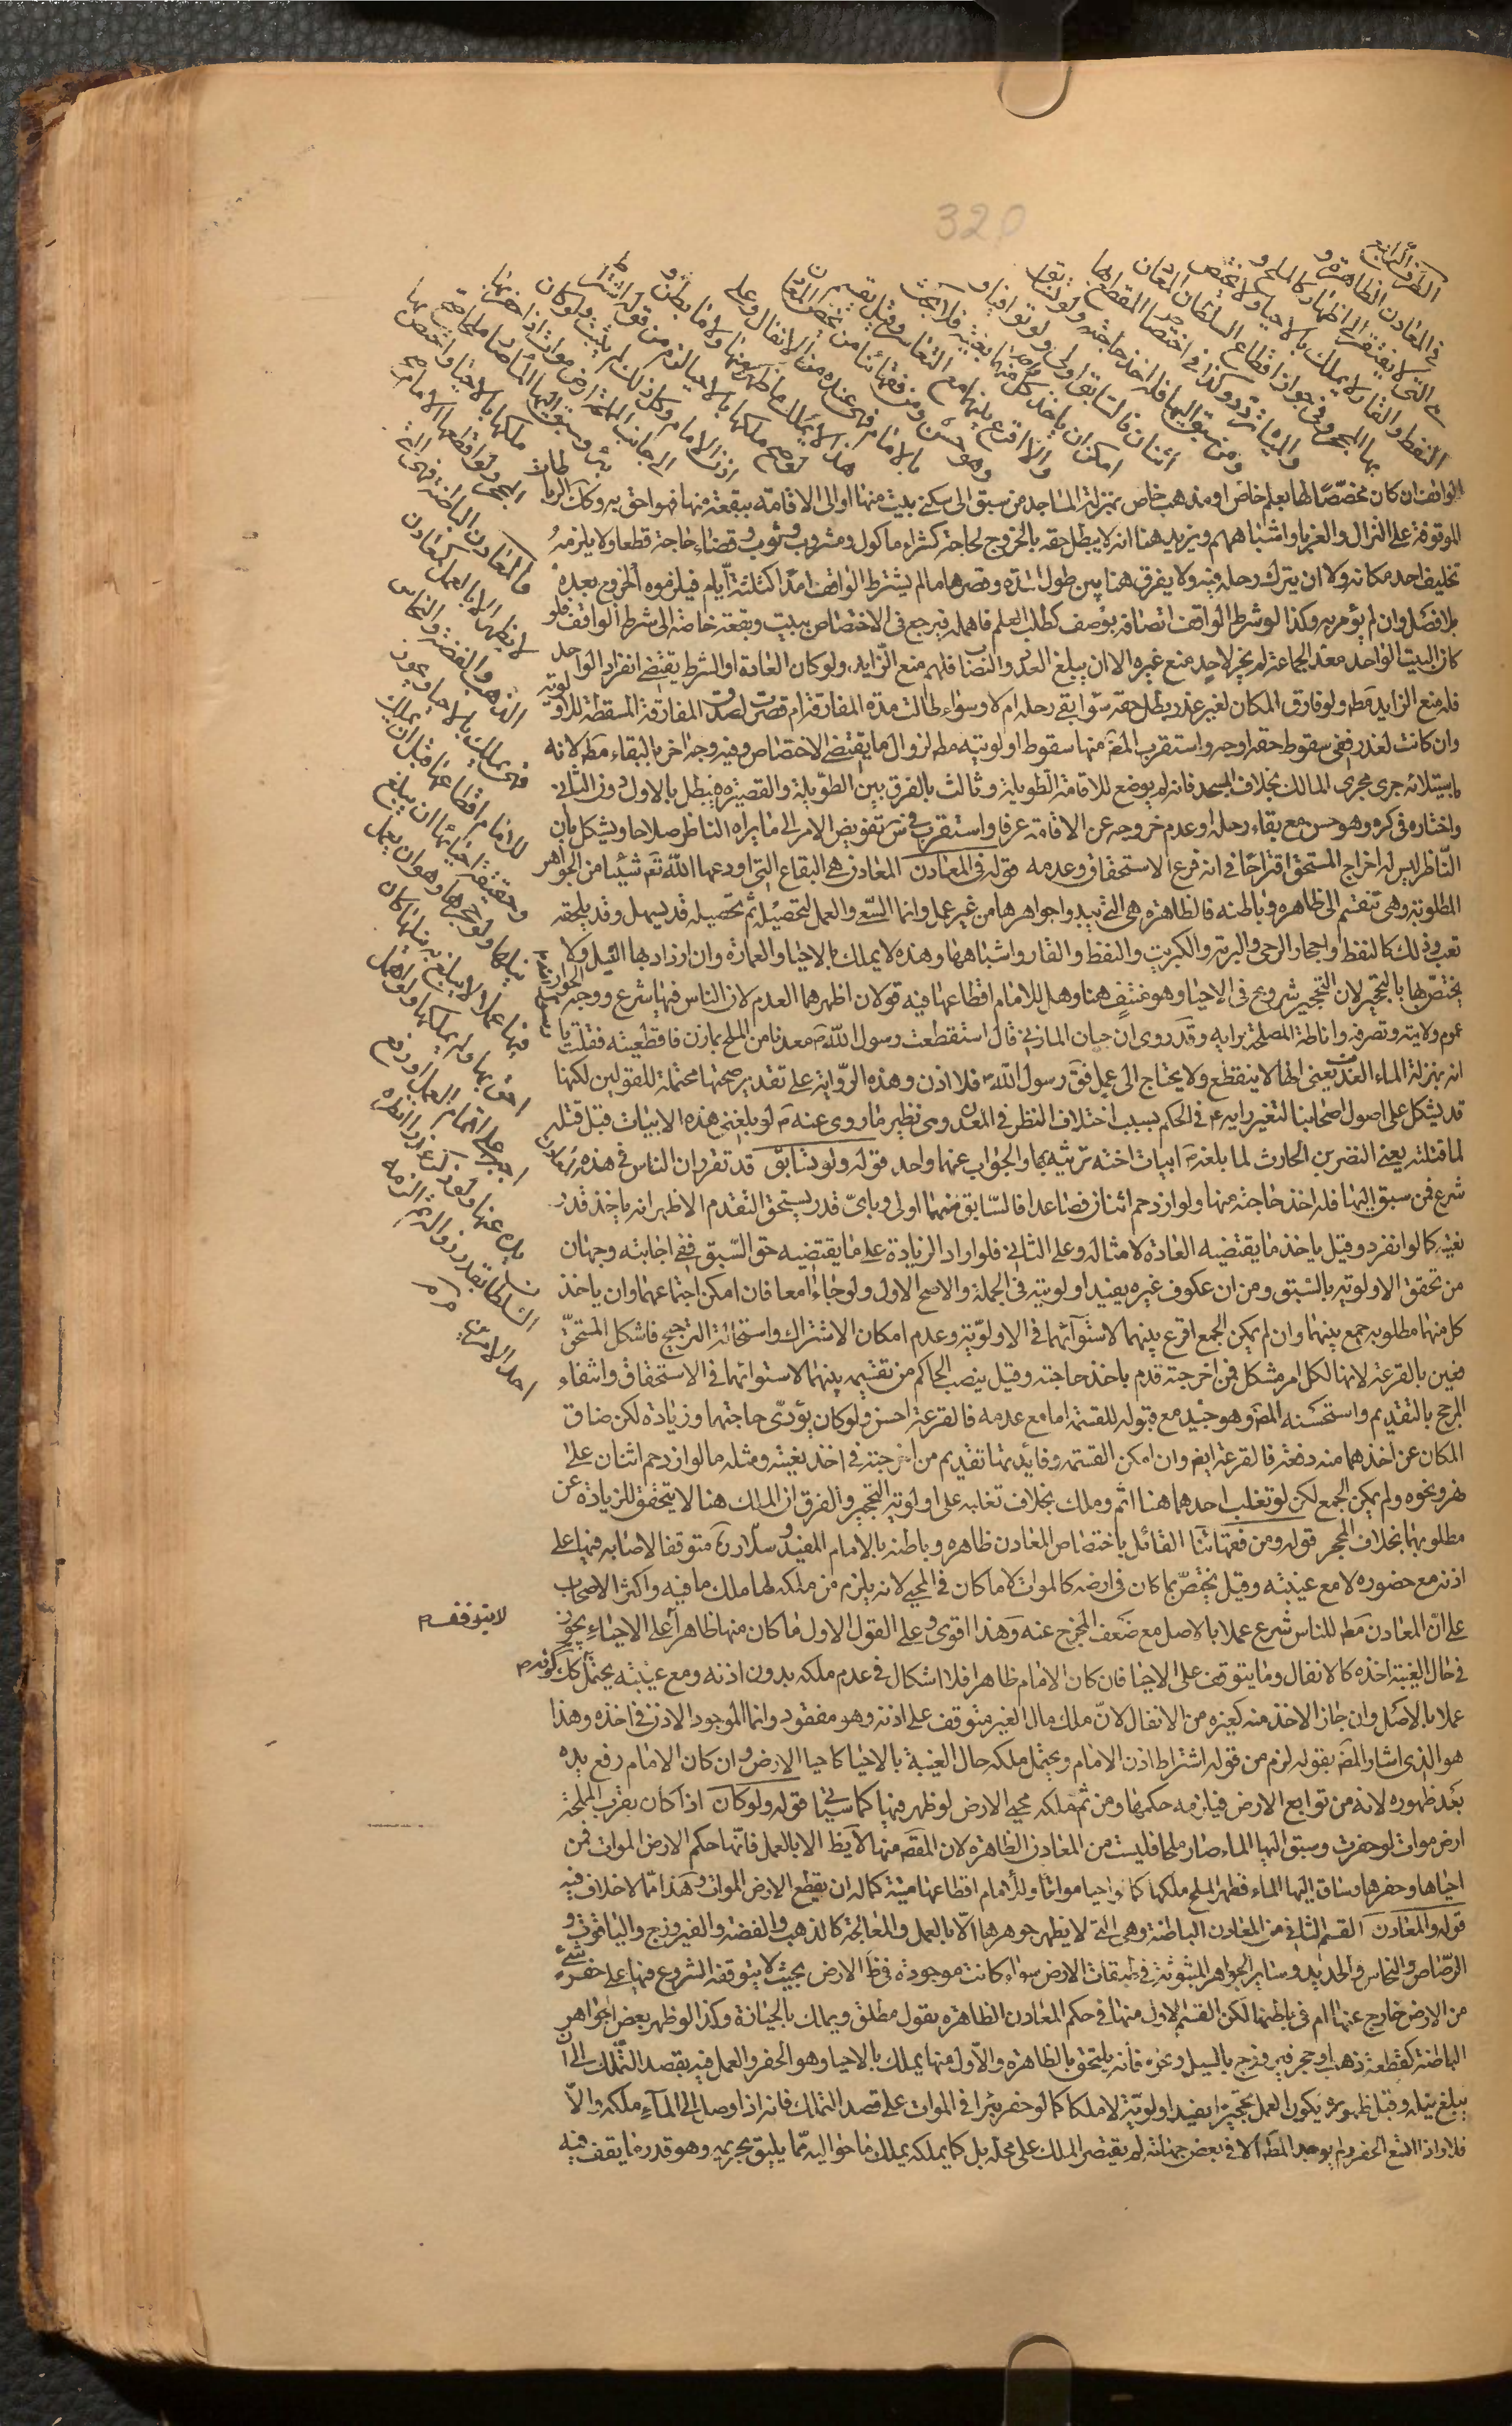 320
الطرف الرابع
في المعادن الظاهرة و
هي التي لا يفتقر الى اظهار كالملح و
النفط والقار لا يملك بالاحياء ولا يختص
بها المحجر وفي جواز اقطاع السلطان المعادن
والمياه تردد وكذا في اختصاص المقطع بها
ومن سبق اليها فله اخذ حاجته ولو تسابق
اثنان فالسابق اولى ولو توافيا و
امكن ان ياخذ كل منهما بغيته فلا بحث
والا اقرع بينهما مع التعاسر وقيل يقسم
وهو حسن ومن فقهائنا من يخص المعادن
بالامام فهي عنده من الانفال وعلى
هذا لا يملك ما ظهر منها وما بطن و
لو صح ملكها بالاحياء لزم من قوله اشتراط
اذن الامام وكل ذلك لم يثبت ولو كان
الى جانب المملحة ارض موات اذا حفر فيها
بئر وسيق اليها الماء صار ملحا صح
ملكها بالاحياء واختص بها
المحجر ولو اقطعها الامام صح
والمعادن الباطنة هي التي
لا يظهر الا بالعمل كمعادن
الذهب والفضة والنحاس
فهي يملك بالاحياء ويجوز
للامام اقطاعها قبل ان يملك
وحقيقة احيائها ان يبلغ
نيلها ولو حجرها وهو ان يعمل
فيها عملا لا يبلغ به نيلها كان
احق بها ولا يملكها ولو اهمل
اجبر على اتمام العمل او رفع
يده عنها ولو ذكر عذرا انظره
السلطان بقدر زواله ثم الزمه
احد الامرين
الواقف ان كان مخصصا لها بعلم خاص او مذهب خاص بمنزلة المساجد من سبق الى سكنى بيت منها او الى الاقامة ببقعة منها فهو احق به وكك الربا
الموقوفة على النزال والغرباء واشباههم ويزيد هنا انه لا يبطل حقه بالخروج لحاجة كشراء ماكول ومشروب وثوب وقضاء حاجة قطعا ولا يلزمه
تخليف احد مكانه ولا ان يترك رحله فيه ولا يفرق هنا بين طول المدة وقصرها ما لم يشترط الواقف امدا كثلثة ايام فيلزموه الخروج بعده
بلا فصل وان لم يؤمر به وكذا لو شرط الواقف اتصافه بوصف كطلب العلم فاهمله فيرجع في الاختصاص ببيت وبقعة خاصة الى شرط الواقف فلو
كان البيت الواحد معدا لجماعة لم يجز لاحد منع غيره الا ان يبلغ العدد والنصاب فلهم منع الزايد ولو كان العادة او الشرط يقتضى انفراد الواحد
فله منع الزايد مط ولو فارق المكان لغير عذر بطل حقه سواء بقى رحله ام لا وسواء طالت مدة المفارقة ام قصرت لصدق المفارقة المسقطة للاولوية
وان كانت لعذر ففى سقوط حقه اوجه واستقرب المصـ منها سقوط اولويته مط لزوال ما يقتضى الاختصاص وفيه وجه اخر بالبقاء مط لانه
باستيلائه جرى مجرى المالك بخلاف المسجد فانه لم يوضع للاقامة الطويلة وثالث بالفرق بين الطويلة والقصيرة فيبطل بالاول دون الثاني
واختاره في كره وهو حسن مع بقاء رحله او عدم خروجه عن الاقامة عرفا واستقرب في س تفويض الامر الى ما يراه الناظر صلاحا ويشكل بان
الناظر ليس له اخراج المستحق اقتراحا في انه فرع الاستحقاق وعدمه قوله في المعادن المعادن هي البقاع التي اودعها الله تعـ شيئا من الجواهر
المطلوبة وهي تنقسم الى ظاهره وباطنه فالظاهرة هي التي تبدو اجواهرها من غير عمل وانما السعى والعمل لتحصيله ثم تحصيله قد يسهل وقد يلحقه
تعب وذلك كالنفط واحجار الرحى والبرم والكبريت والنفط والقار واشباهها وهذه لا يملك بالاحياء والعمارة وان ازداد بها النيل ولا
يختص بها بالتحجير لان التحجير شروع في الاحياء وهو منتف هنا وهل للامام اقطاعها فيه قولان اظهرهما العدم لان الناس فيها شرع ووجه الجواز
عموم ولايته وتصرفه واناطة المصلحة برايه وقد روى ان حيان المازني قال استقطعت رسول الله ص معدنا من الملح بمارن فاقطعنيه فقلت يا رسول الله
انه بمنزلة الماء العد يعنى انها لا ينقطع ولا يحتاج الى عمل فق رسول الله ص فلا اذن وهذه الرواية على تقدير صحتها محتملة للقولين لكنها
قد يشكل على اصول اصحابنا التغير رايه ص في الحكم بسبب اختلاف النظر في المعدن وهى نظير ما روى عنه ص لو بلغني هذه الابيات قبل قتله
لما قتلته يعنى النضر بن الحارث لما بلغه ص ابيات اخته ترثيه بها والجواب عنها واحد قوله ولو تسابق قد تقرر ان الناس في هذه المعادن
شرع فمن سبق اليها فله اخذ حاجته منها ولو ازدحم اثنان فصاعدا فالسابق منهما اولى وباي قدر يستحق التقدم الاظهر انه ياخذ قدر
بغيته كما لو انفرد وقيل ياخذ ما يقتضيه العادة لامثاله وعلى الثاني فلو اراد الزيادة على ما يقتضيه حق السبق ففى اجابته وجهان
من تحقق الاولوية بالسبق ومن ان عكوف غيره يفيد اولويته في الجملة والاصح الاول ولو جاءا معا فان امكن اجتماعهما وان ياخذ
كل منهما مطلوبه جمع بينهما وان لم يمكن الجمع اقرع بينهما لاستوائهما في الاولوية وعدم امكان الاشتراك واستحالة الترجيح فاشكل المستحق
فعين بالقرعة لانها لكل امر مشكل فمن اخرجته قدم باخذ حاجته وقيل ينصب الحاكم من تقسيمه بينهما لاستوائهما في الاستحقاق وانتفاء
المرجح بالتقديم واستحسنه المصـ وهو جيد مع قبوله للقسمة اما مع عدمه فالقرعة احسن ولو كان يؤدى حاجتهما وزيادة لكن ضاق
المكان عن اخذهما منه دفعة فالقرعة ايض وان امكن القسمة وفائدتها تقديم من اخرجته في اخذ بغيته ومثله ما لو ازدحم اثنان على
نهر ونحوه ولم يمكن الجمع لكن لو تغلب احدهما هنا اثم وملك بخلاف تغلبه على اولوية التحجير والفرق ان الملك هنا لا يتحقق للزيادة عن
مطلوبهما بخلاف المحجر قوله ومن فقهائنا القائل باختصاص المعادن ظاهره وباطنه بالامام المفيد وسلار ره متوقفا لاصابه فيها على
اذنه مع حضوره لا مع غيبته وقيل يختص بما كان في ارضه كالموات لا ما كان في المحيى لانه يلزم من ملكه لها ملك ما فيه واكثر الاصحاب
على ان المعادن مط للناس شرع عملا بالاصل مع ضعف المخرج عنه وهذا اقوى وعلى القول الاول ما كان منها ظاهرا على الاحياء يجوز
لا يتوقف
في حال الغيبة اخذه كالانفال وما يتوقف على الاحيا فان كان الامام ظاهرا فلا اشكال في عدم ملكه بدون اذنه ومع غيبته يحتمل كك
عملا بالاصل وان جاز الاخذ منه كغيره من الانفال لان ملك مال الغير متوقف على اذنه وهو مفقود وانما الموجود الاذن في اخذه وهذا
هو الذي اشار المصـ بقوله لزم من قوله اشتراط اذن الامام ويحتمل ملكه حال الغيبة بالاحيا كاحيا الارض وان كان الامام رفع يده
بعد ظهوره لانه من توابع الارض فيلزمه حكمها ومن ثم ملكه محيى الارض لو ظهر فيها كما سياتي قوله ولو كان اذا كان بقرب المملحة
ارض موات لو حفرت وسيق اليها الماء صار ملحا فليست من المعادن الظاهرة لان المقصـ منها لا يظ الا بالعمل فانها حكم الارض الموات فمن
احياها وحفرها وساق اليها الماء فظهر الملح ملكها كما لو احيا مواتا وللامام اقطاعها ميتة كما له ان يقطع الارض الموات وهذا مما لا خلاف فيه
قوله والمعادن القسم الثاني من المعادن الباطنة وهي التي لا يظهر جوهرها الا بالعمل والمعالجة كالذهب والفضة والفيروزج والياقوت و
الرصاص والنحاس والحديد وساير الجواهر المبثوثة في طبقات الارض سواء كانت موجودة في ظ الارض بحيث لا يتوقف الشروع فيها على حفر شئ
من الارض خارج عنها ام في باطنها لكن القسم الاول منها في حكم المعادن الظاهرة بقول مطلق ويملك بالحيازة وكذا لو ظهر بعض اجواهر
الباطنة كقطعة ذهب او حجر فيروزج بالسيل ونحوه فانه يلتحق بالظاهرة والاول منها يملك بالاحيا وهو الحفر والعمل فيه بقصد التملك الى ان
يبلغ نيله وقبل ظهوره يكون العمل تحجيرا يفيد اولوية لا ملكا كما لو حفر بئرا في الموات على قصد التملك فانه اذا وصل الى الماء ملكه والا
فلا واذا اتسع الحفر ولم يوجد المط الا في بعض جهاته لم يقتصر الملك على محله بل كما يملكه يملك ما حواليه مما يليق بحريمه وهو قدر ما يقف فيه